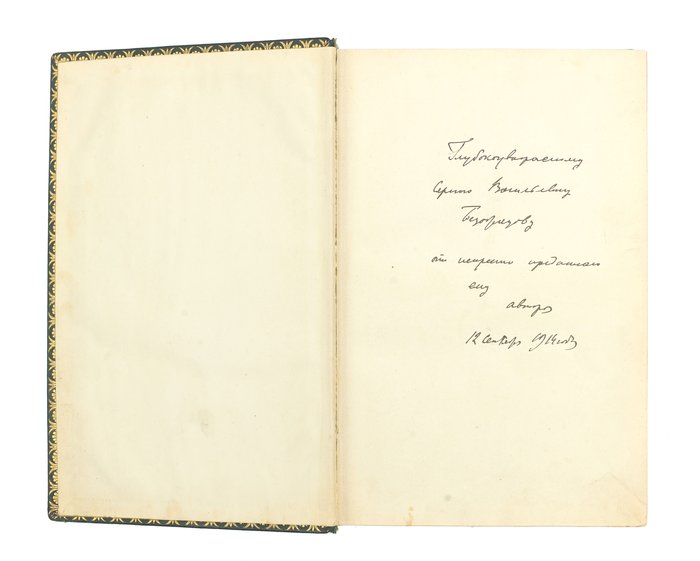 Глубокоуважаемому
Сергею Васильевичу
Безобразову
от искренно преданного
ему
автора
12 сентября 1914 года